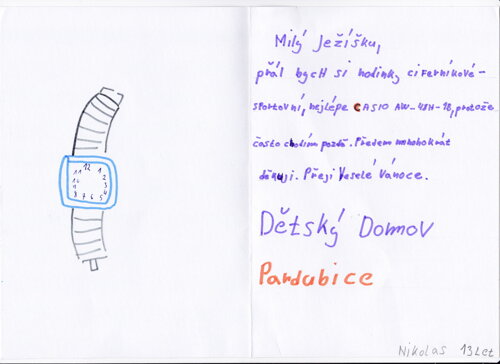 12
11 1
10 2
9 3
8 7 6 5 4
Milý Ježíšku,
přál bycH si hodinky ciFerníkové-
sportovní, nejlépe CASIO AW-48H-1B, protože
často chodím pozdě. Předem mnohokrát
děkuji. Přeji Veselé Vánoce.
Dětský Domov
Pardubice
Nikolas 13 Let